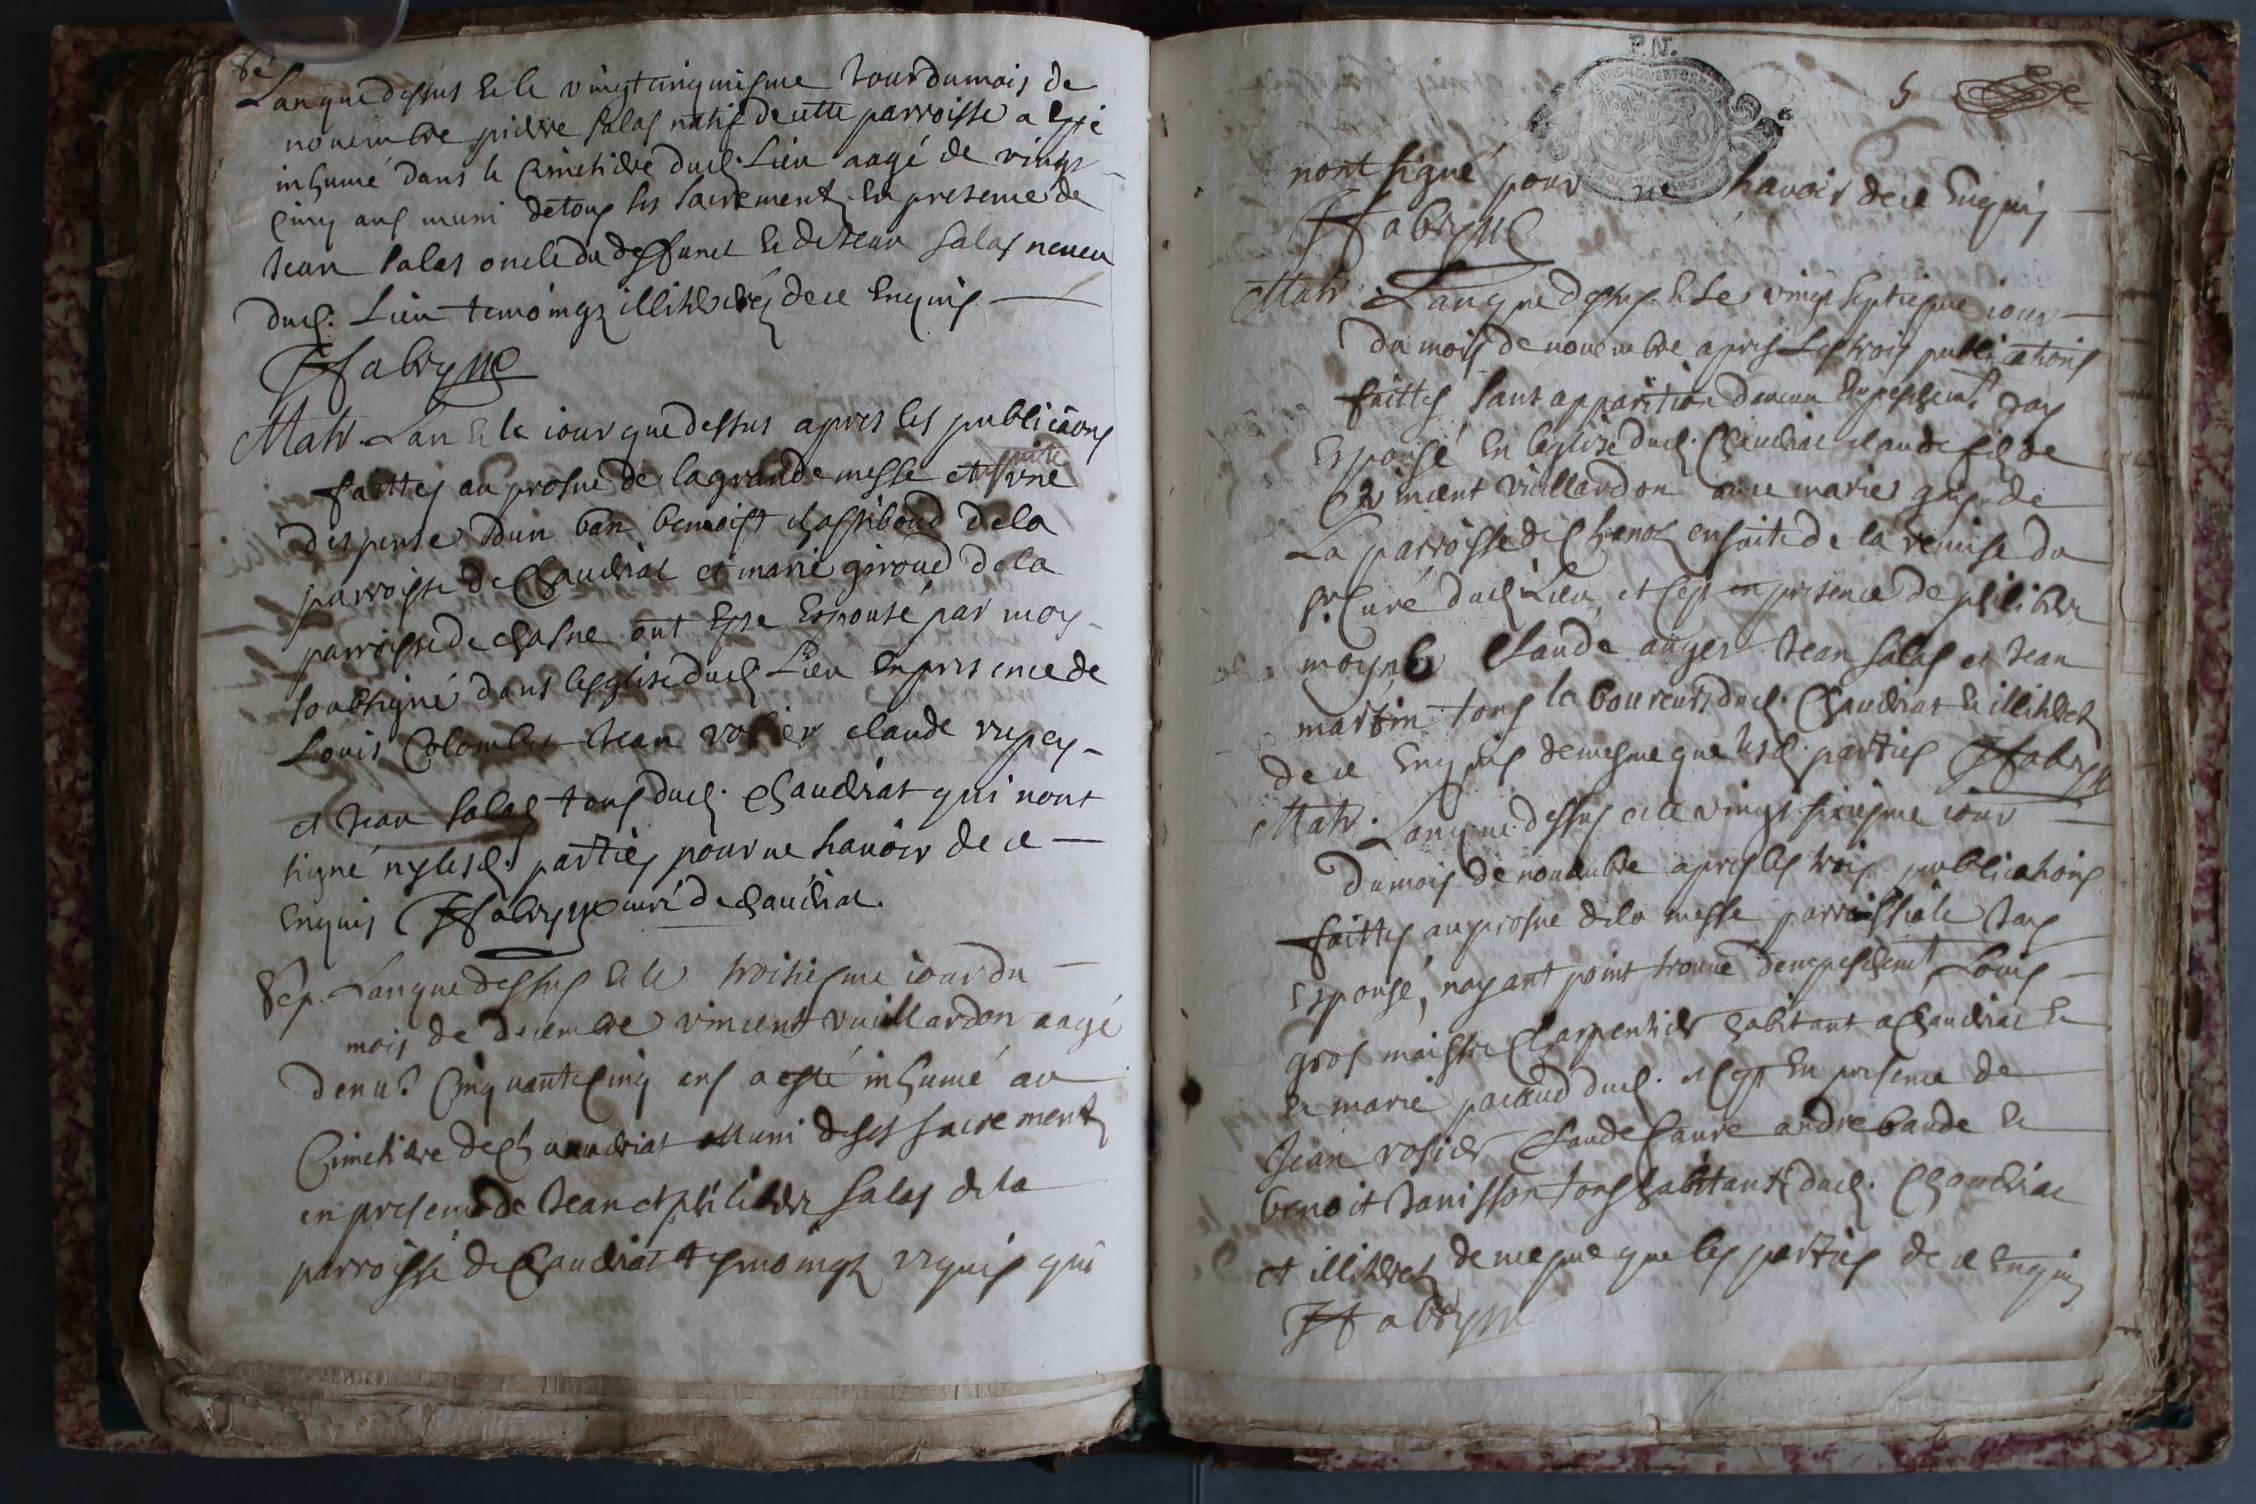 Sé
Lan que dessus & le vingt cinquiesme Jour du mois de
nouembre pierre salas natif de cette parroisse a esté
inhumé dans le Cimetiere dud. Lieu aagé de vingt
Cinq ans muni de tous les sacrements En presence de
Jean salas oncle du deffunct & de Jean salas neueu
dud. Lieu temoings illiterés de ce Enquis
Fabry
Matr. Lan & le iour que dessus apres les publicãons
faittes au prosne de la grande messe et une
dispense dun ban benoist chassiboud de la
parroisse de Chaudriat et marie giroud de la
parroisse de chasne ont Esté Espousé par moy
soubsigné dans lesglise dud. Lieu En presence de
Louis Colombet Jean rosier claude
et Jean salas tous dud. Chaudriat qui nont
signé ny lesd. parties pour ne scauoir de ce
Enquis Fabry curé de chaudriat.
Sep. Lan que dessus & le troisiesme iour du
mois de decembre vincent vuillardon aagé
denu.ⁿ Cinquante Cinq ans a esté inhumé au
Cimetiere de Chaudriat Muni de ses sacrements
en presence de Jean et philibert salas de la
parroisse de Chaudriat tesmoings requis qui
P.N.
5
nont signé pour ne scauoir de ce Enquis
Fabry
Matr. Lan que dessus & Le vingt septiesme iour
du mois de nouembre apres Les trois publications
faittes sans apparition daucun Empeschem.ᵗ Jay
Espousé En leglise dud. Chaudriat claude fils de
vincent vuillardon auec marie de
La parroisse de ensuite de la remise du
Sr. Curé dud. Lieu, et cest en presence de philibert
moyne Claude auger Jean salas et Jean
martin tous laboureurs dud. Chaudriat & illiteres
de ce Enquis de mesme que lesd. parties Fabry
Matr. Lan que dessus et le vingt sixiesme iour
du mois de nouembre apres les trois publications
faittes au prosne de la messe parroissiale Jay
Espousé, nayant point trouué dempeschem.ᵗ Louis
gros maistre Charpentier habitant a Chaudriat &
& marie pacaud dud. et cest En presence de
Jean rosier Claude faure andre baude &
benoit Janisson tous habitants dud. Chaudriat
et illiteres de mesme que les parties de ce Enquis
Fabry